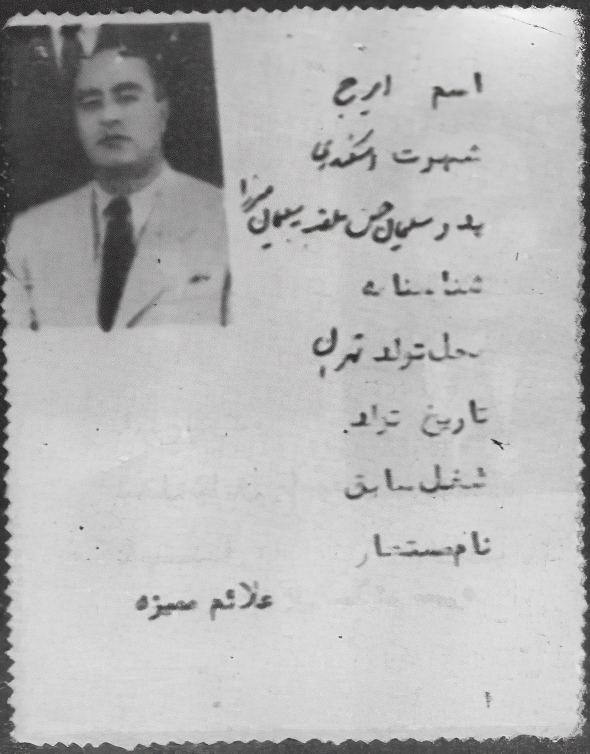 اسم ایرج
شهرت اسکندری
پدر سلیمان محسن ملقب بسلیمان میرزا
شناسنامه
محل تولد تهران
تاریخ تولد
شغل سابق
نام مستعار
علائم ممیزه